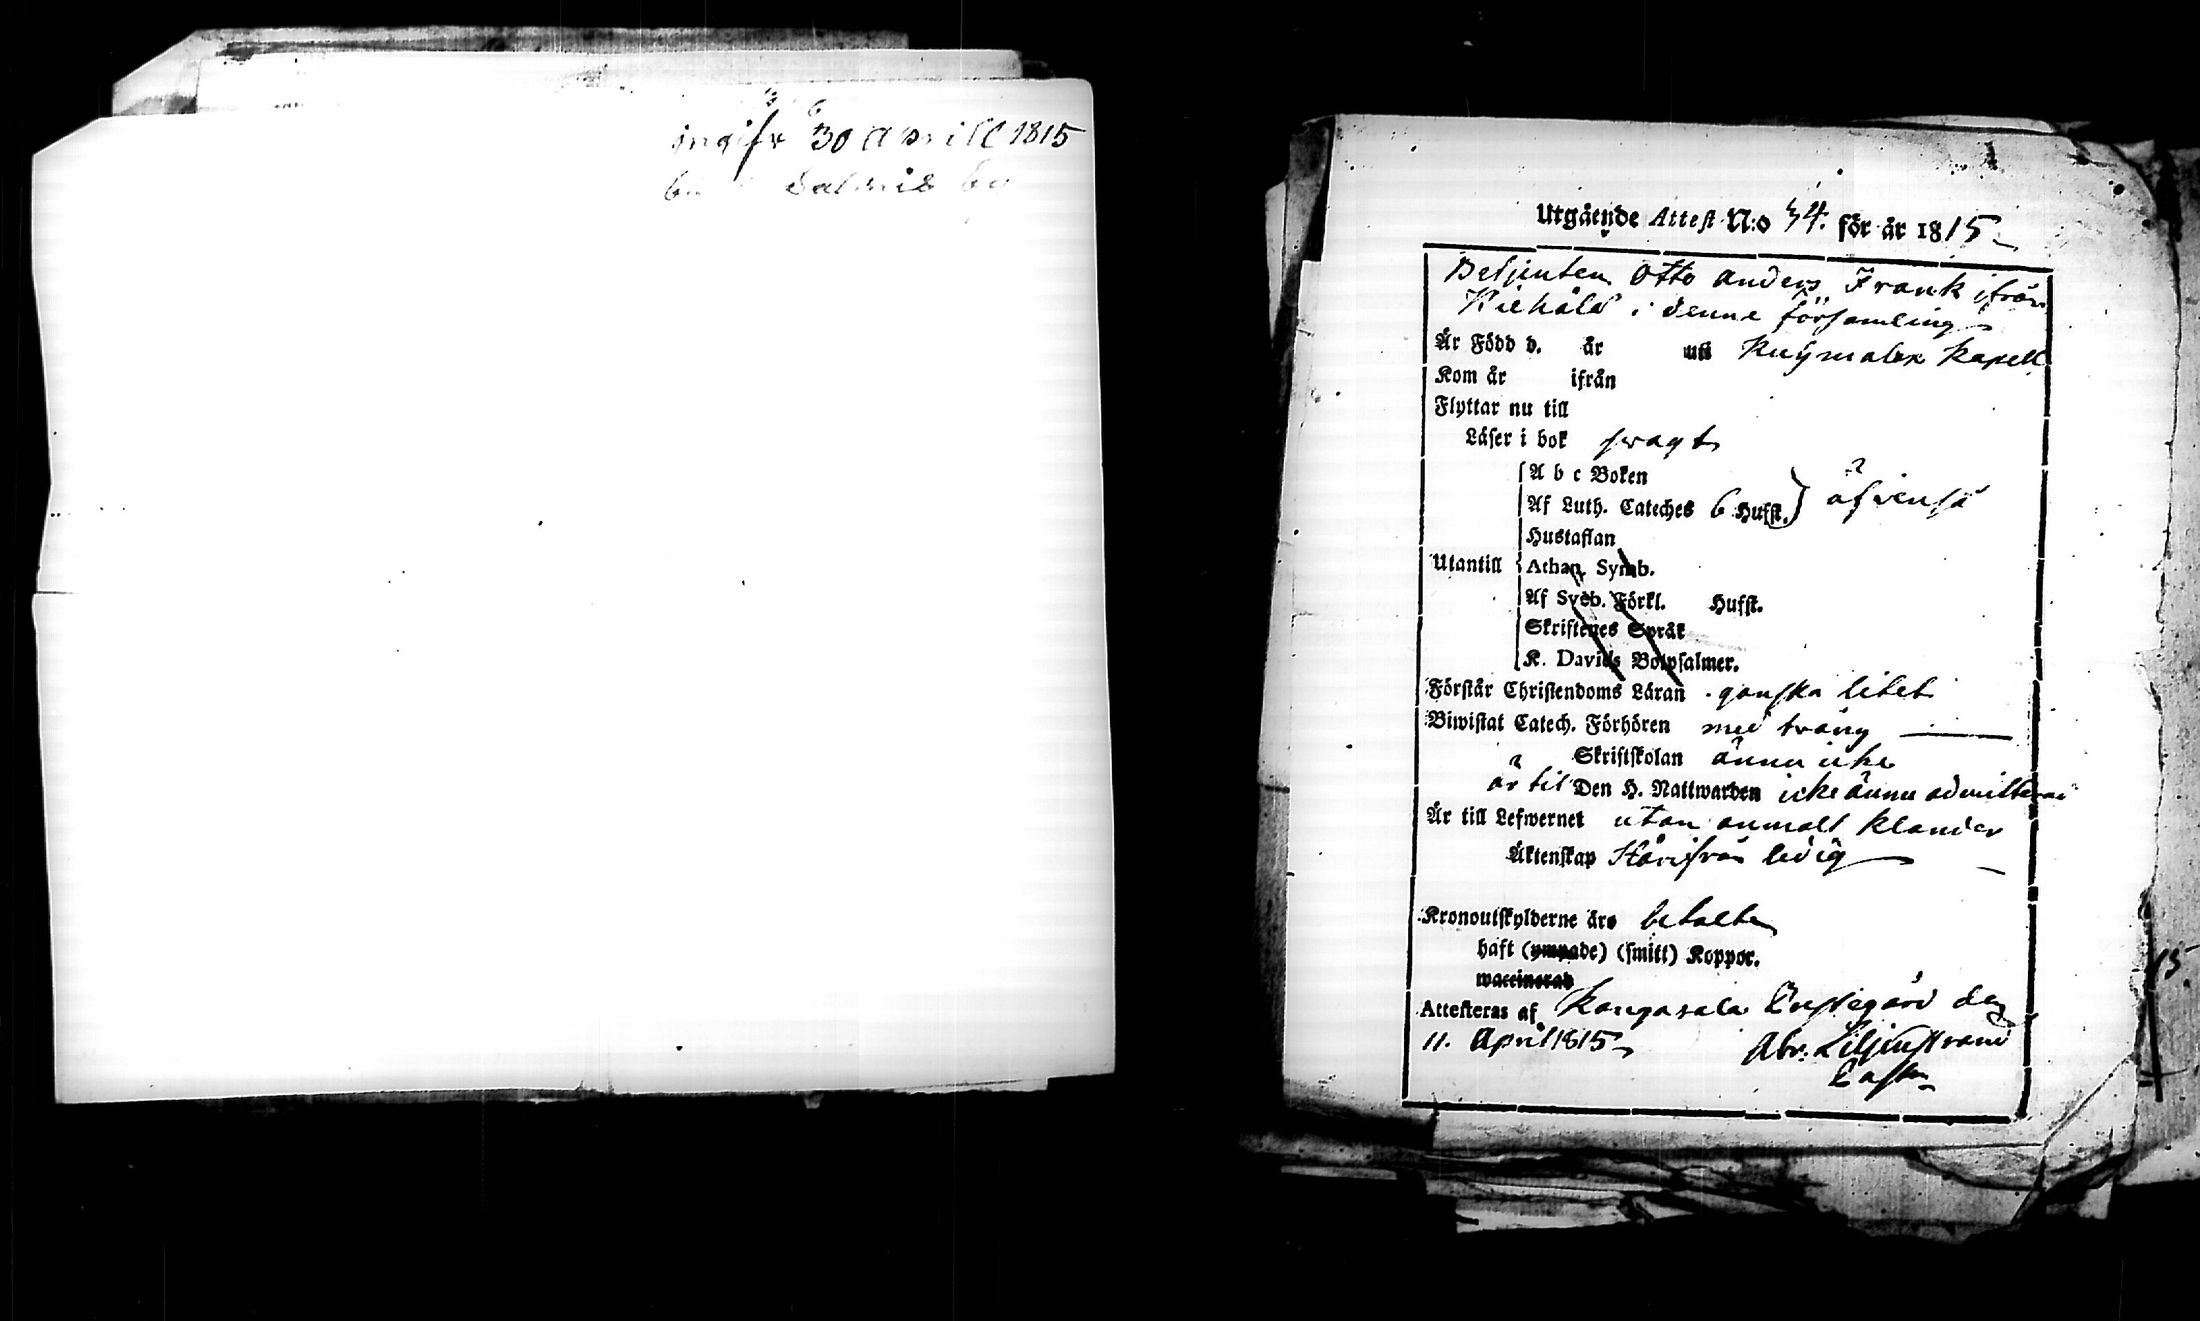 30 aprill 1815
by
Utgående Attest N:o 34. för år 1815
Betjenten Otto Anders Frank ifrån
i denne församling
Är Född d. år uti Kuhmalax Kapell
Kom år ifrån
Flyttar nu till
Läser i bok swagt
A b c Boken
Af Luth. Cateches 6 Hufst. äfvenså
Hustaflan
Utantill Athan. Symb.
Af Sveb. Förkl. Hufst.
Skriftenes Språk
K. Davids Botpsalmer.
Förstår Christendoms Läran ganska litet
Biwistat Catech. Förhören med trång
Skriftskolan ännu icke
är til Den H. Nattwarden icke ännu admitterad
Är till Lefwernet utan anmält klander
Äktenskap Härifrån ledig
Kronoutskylderne äro betalte
haft (ympade) (smitt) Koppor.
waccinerad
Attesteras af Kangasala Prestegård den
11. April 1815 Abr. Liljenstrand
Past.